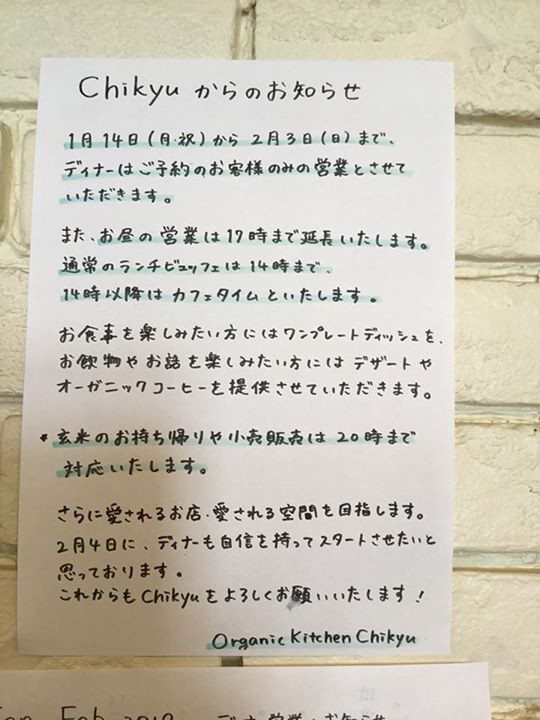 Chikyu からのお知らせ
1月14日(月・祝)から2月3日(日)まで、
ディナーはご予約のお客様のみの営業とさせて
いただきます。
また、お昼の営業は17時まで延長いたします。
通常のランチビュッフェは14時まで、
14時以降はカフェタイムといたします。
お食事を楽しみたい方にはワンプレートディッシュを、
お飲物やお話を楽しみたい方にはデザートや
オーガニックコーヒーを提供させていただきます。
* 玄米のお持ち帰りや小売販売は20時まで
対応いたします。
さらに愛されるお店・愛される空間を目指します。
2月4日に、ディナーも自信を持ってスタートさせたいと
思っております。
これからもChikyuをよろしくお願いいたします!
Organic Kitchen Chikyu